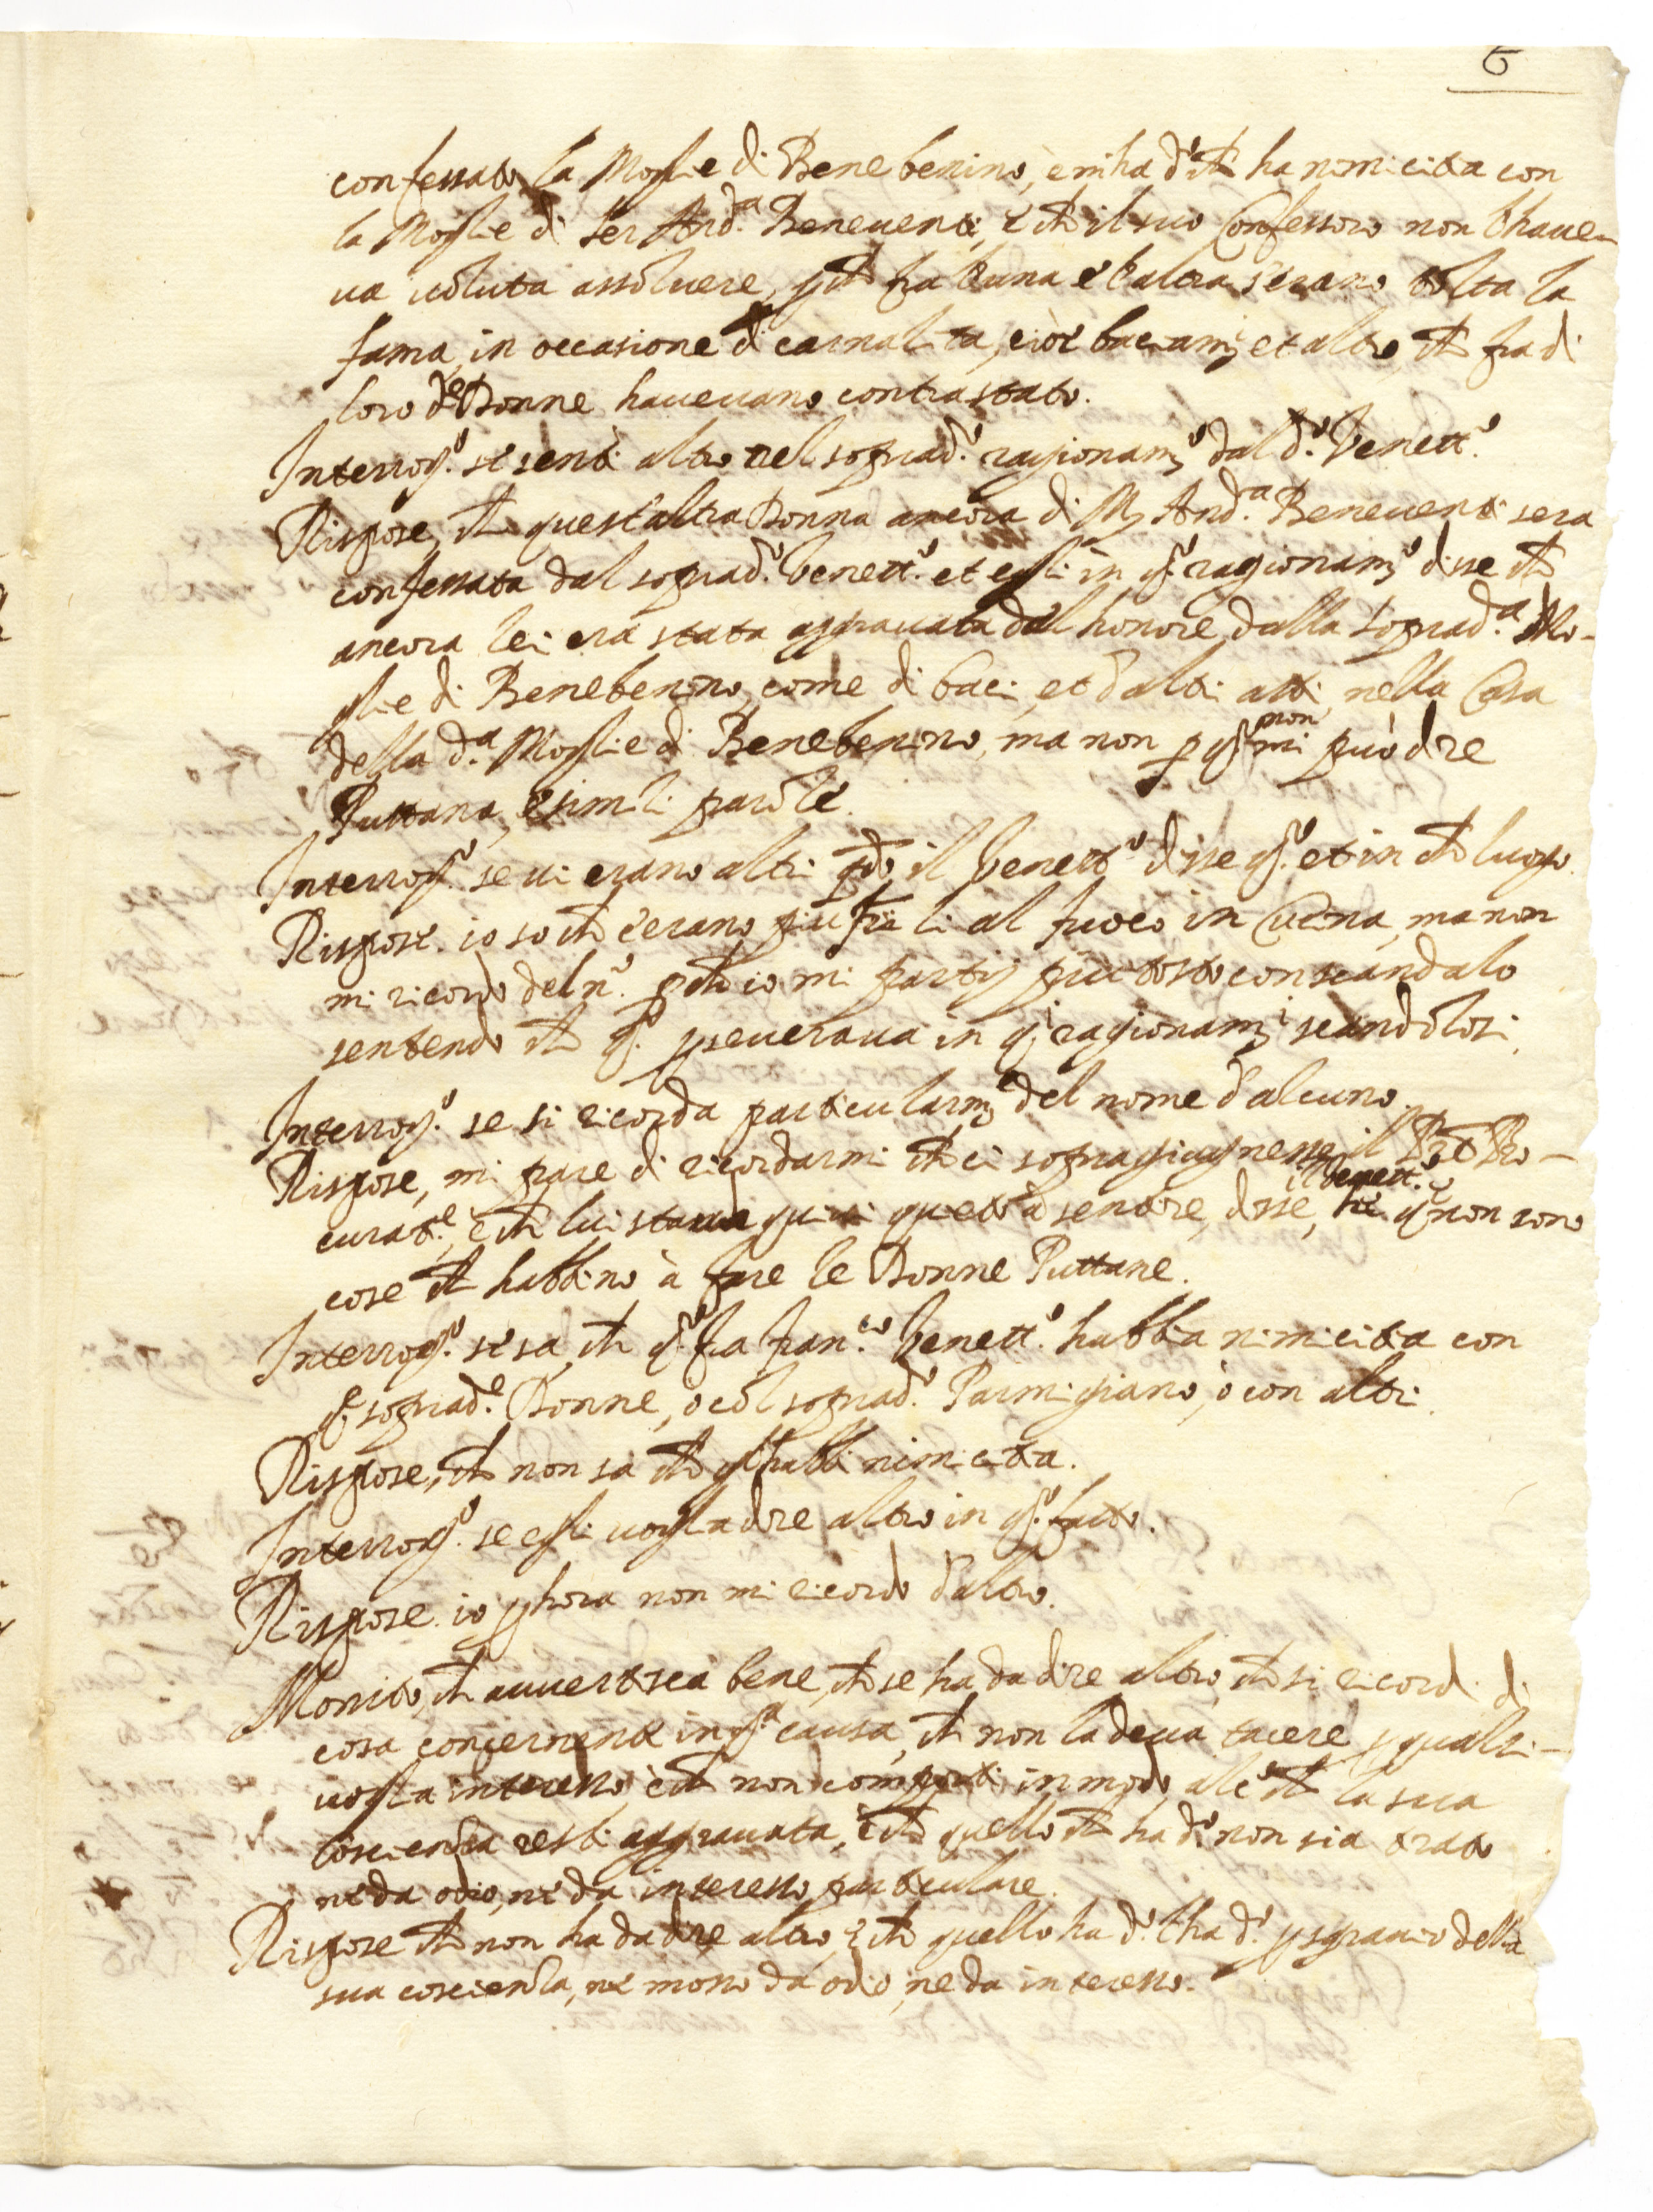 6
confessato la Moglie di Benebenino, e mi ha d.º ch ha nomicitia con
la Moglie di ser And.ª Beneventi, è ch il suo Confessoro non l'haue-
ua uoluta assoluere, p ch fra l'una è l'altra s'erano tolta la
fama, in occasione di carnalita, cioè baciam.i et altro, ch fra di
loro d.e Donne haueuano contrastato.
Interrog.º se senti altro nel soprad.º ragionam.º dal d.º benett.º
Rispose, ch quest'altra Donna ancora di M. And.ª Beneuenti s'era
confessata dal soprad.º benett.º et egli in q.º ragionam.º disse ch
ancora lei era stata aggrauata dal honore dalla soprad.ª Mo-
glie di Benebenino, come di baci, et d'altri atti, nella Casa
della d.ª Moglie di Benebenino, ma non p q.º non mi può dire
Puttana, è simili parole.
Interrog.º se ui erano altri qdo il benett.º disse q.º et in ch luogo.
Rispose. io so ch c'erano piu frati al fuoco in Cucina, ma non
mi ricordo del n.º p ch io mi partij piu tosto con scandalo
sentendo ch q.º pseueraua in q.i ragionam.i scandolosi.
Interrog.º se si ricorda particularm.e del nome d'alcuno.
Rispose, mi pare di ricordarmi ch ci sopragiugnesse il Pre Pro-
curat.e, è ch lui staua quiui queto à sentire, disse, il benett.º q.e non sono
cose ch habbino à fare le Donne Puttane.
Interrog.º se sa, ch q.º fra Fran.co benett.º habbia nimicitia con
q.e soprad.e Donne, ò col soprad.º Parmigiano, ò con altri.
Rispose, ch non sa ch gl'habbi nimicitia.
Interrog.º se egli uoglia dire altro in q.º fatto.
Rispose. io p hora non mi ricordo d'altro.
Monito, ch auuertisca bene, ch se ha da dire altro, ch si ricordi di
cosa concernente in q.ª causa, ch non la deua tacere p qualsi-
uoglia interesso, è ch non comporti in modo alc.º ch la sua
coscienza resti aggrauata, è ch quello ch ha d.º non sia tirato
nè da odio, nè da interesso particulare.
Rispose ch non ha da dire altro, è ch quello ha d.º l'ha d.º p sgrauio della
sua coscienza, nè mosso da odio, ne da interesso.